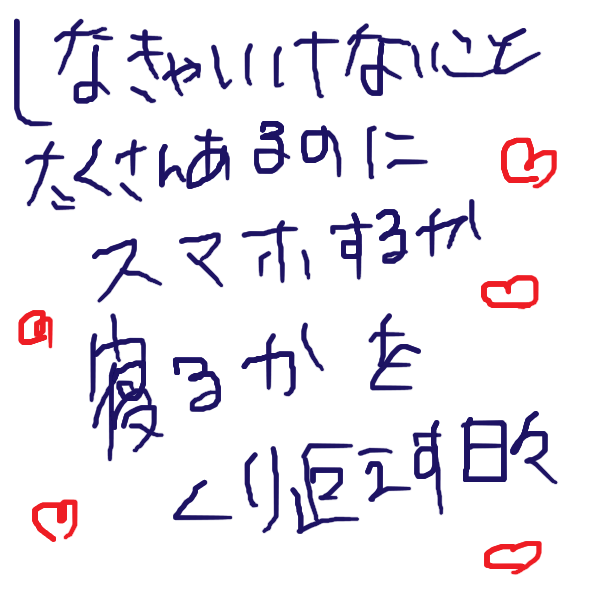 しなきゃいけないこと
たくさんあるのに
スマホするか
寝るかを
くり返えす日々